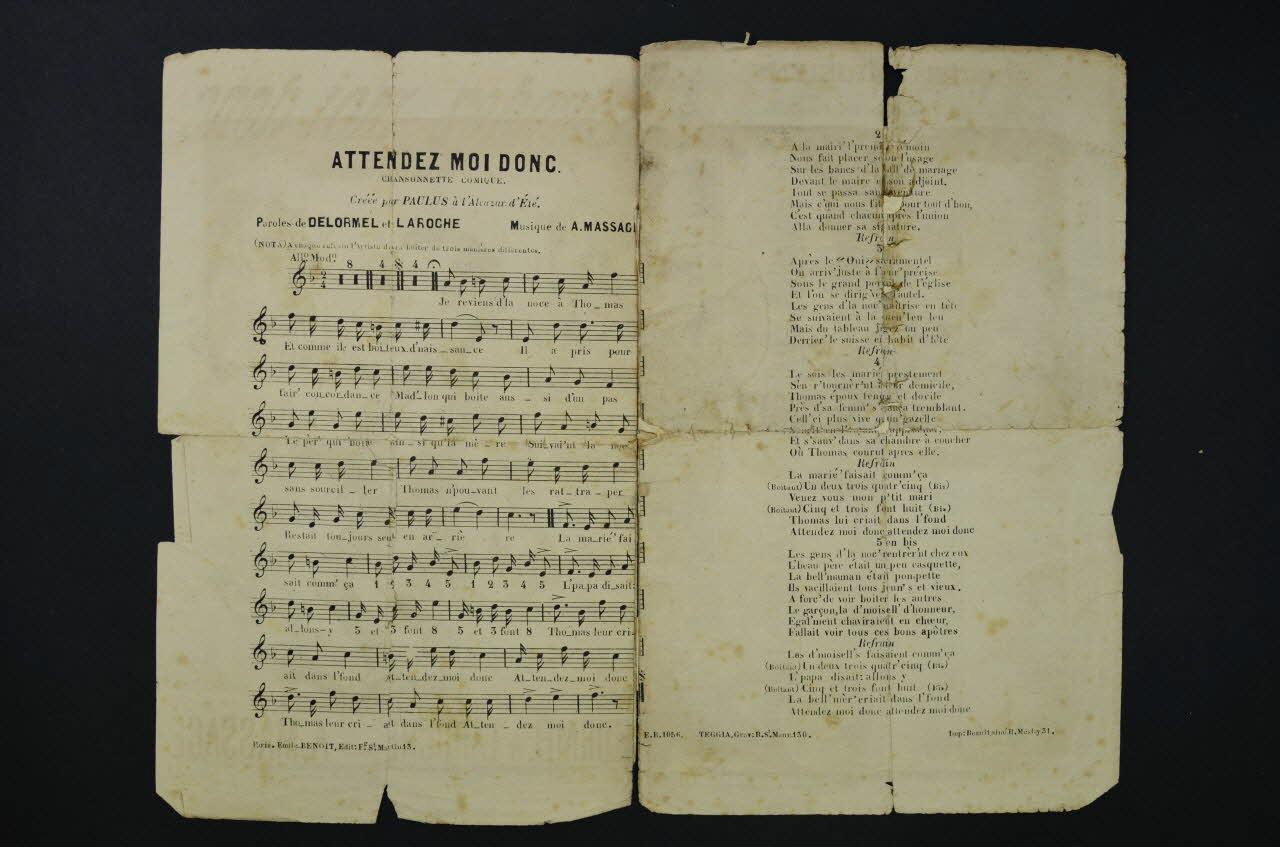 ATTENDEZ MOI DONC.
CHANSONNETTE COMIQUE.
Créée par PAULUS à l'Alcazar d'Été.
Paroles de DELORMEL et LAROCHE
Musique de A. MASSAGE
(NOTA) A chaque refrain l'Artiste devra boiter de trois manières différentes.
All.º Mod.º
8 4 4
Je reviens d'la noce à Tho_mas
Et comme ile est boi_teux d'nais_san_ce Il a pris pour
fair' con_cor_dan_ce Mad'_lon qui boite aus_ si d'un pas
Le pèr' qui boite ain_si qu'la mè_re Sui_vai'nt la noc'
sans sourcil_ler Thomas n'pou_vant les rat_tra_per
Restait tou_jours seul en ar_riè re La ma_rié' fai
sait comm' ça 1 2 3 4 5 1 2 3 4 5 L'pa_pa di_sait:
al_lons_y 5 et 3 font 8 5 et 3 font 8 Tho_mas leur cri_
ait dans l'fond At_ten_dez_moi donc At_ten_dez_moi donc
Tho_mas leur cri_ ait dans l'fond At_ten_ dez moi donc.
Paris. Emile BENOIT, Edit: Fg. St. Martin 13.
2
A la mairi' l'premier témoin
Nous fait placer selon l'usage
Sur les bancs d'la sall' de mariage
Devant le maire et son adjoint.
Tout se passa sans aventure
Mais c'qui nous fit pour tout d'bon,
C'est quand chacun après l'union
Alla donner sa signature.
Refrain
3
Après le "Oui" sacramentel
On arriv' juste à l'heur' précise
Sous le grand porche de l'église
Et l'on se dirig' vers l'autel.
Les gens d'la noc' maîtrise en tête
Se suivaient à la queu' leu leu
Mais du tableau jugez un peu
Derrier' le suisse en habit d'fête
Refrain
4
Le soir les mariés prestement
S'en r'tournèr'nt à leur domicile,
Thomas époux tendre et docile
Près d'sa femm' s'avança tremblant.
Cell'ci plus vive qu'un' gazelle
Et s'sauv' dans sa chambre à coucher
Où Thomas courut après elle.
Refrain
La marié' faisait comm'ça
(Boitant) Un deux trois quatr' cinq (Bis)
Venez vous mon p'tit mari
(Boitant) Cinq et trois font huit (Bis)
Thomas lui criait dans l'fond
Attendez moi donc attendez moi donc
5 en bis
Les gens d'la noc' rentrèr'nt chez eux
L'beau père était un peu casquette,
La bell'maman était pompette
Ils vacillaient tous jeun's et vieux.
A forc' de voir boiter les autres
Le garçon, la d'moisell' d'honneur,
Egal'ment chaviraient en chœur,
Fallait voir tous ces bons apôtres
Refrain
Les d'moisell's faisaient comm'ça
(Boitant) Un deux trois quatr' cinq (Bis)
L'papa disait: allons y
(Boitant) Cinq et trois font huit (Bis)
La bell'mèr' criait dans l'fond
Attendez moi donc attendez moi donc
E.B. 1056. TEGGIA, Grav: R. St. Maur 130.
Imp: Benoit, R. Meslay 31.